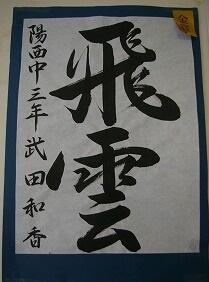 飛雲
陽西中三年 武田和香
金賞